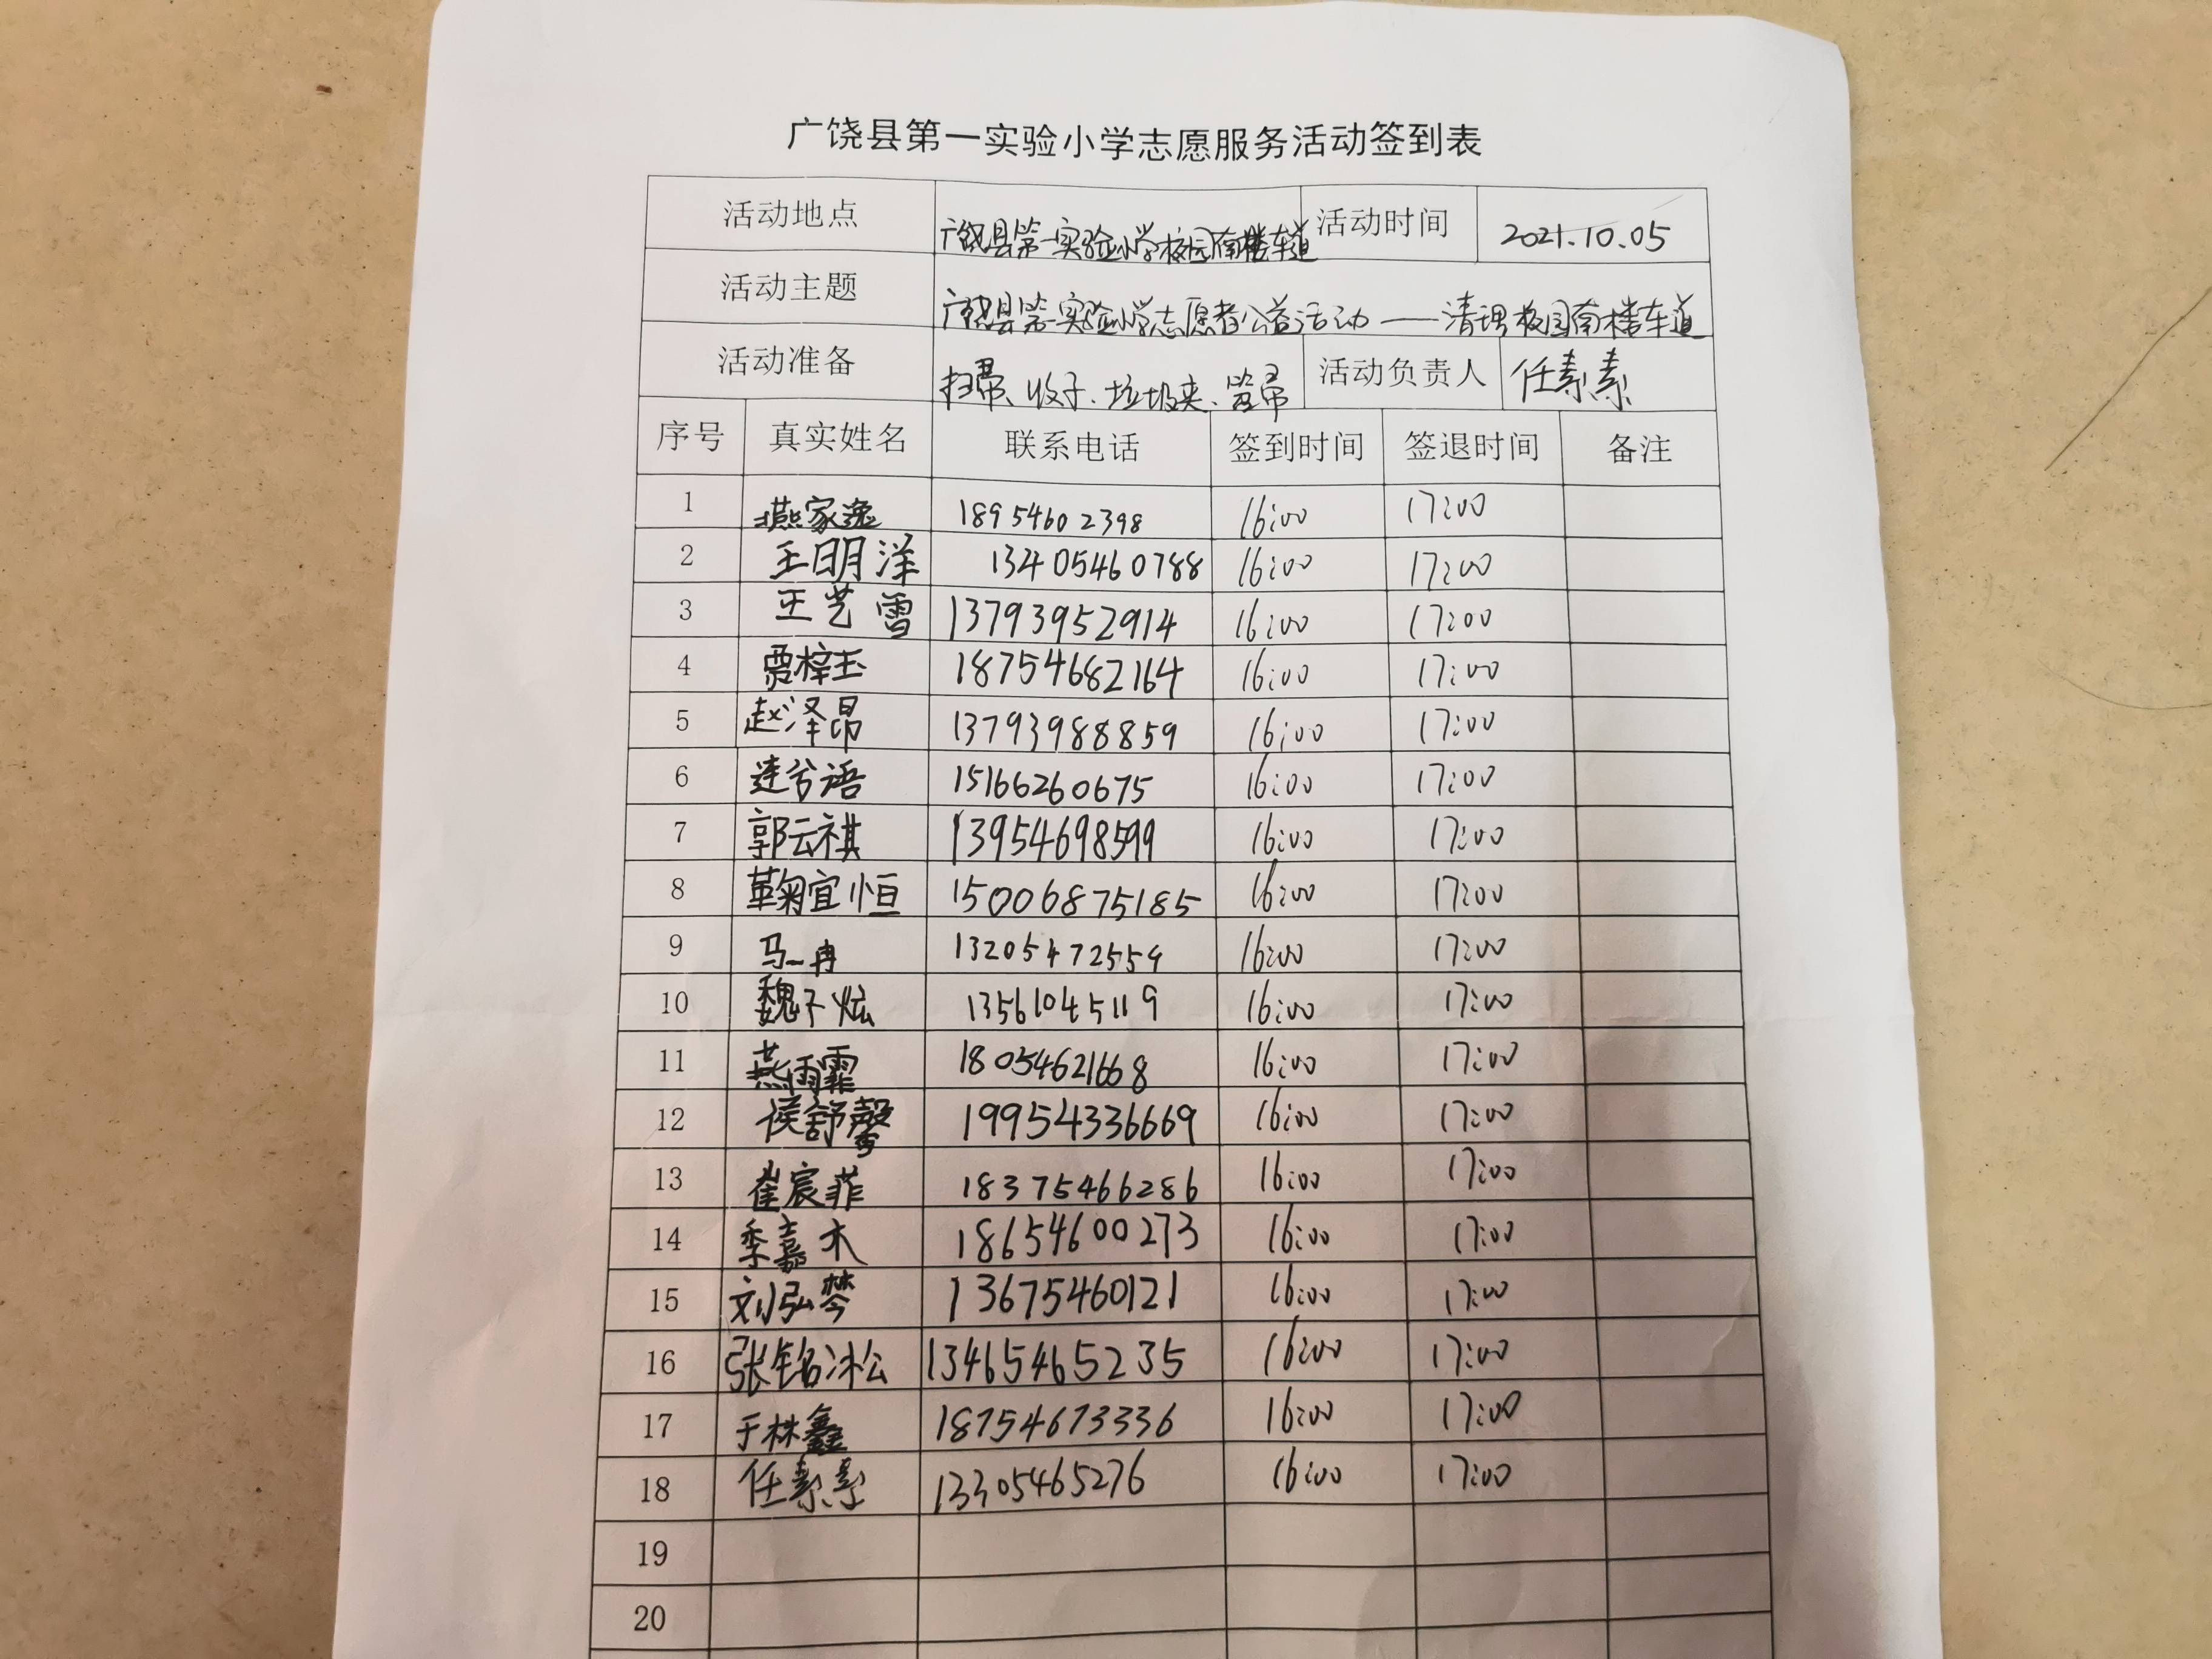 广饶县第一实验小学志愿服务活动签到表
活动地点 广饶县第一实验小学校园南楼车道 活动时间 2021.10.05
活动主题 广饶县第一实验小学志愿者公益活动——清理校园南楼车道
活动准备 扫帚、收子、垃圾夹、笤帚 活动负责人 任素素
序号 真实姓名 联系电话 签到时间 签退时间 备注
1 燕家逸 18954602398 16:00 17:00
2 王明洋 13405460788 16:00 17:00
3 王艺雪 13793952914 16:00 17:00
4 贾梓玉 18754682164 16:00 17:00
5 赵泽昂 13793988859 16:00 17:00
6 逄兮语 15166260675 16:00 17:00
7 郭云祺 13954698599 16:00 17:00
8 鞠宜恒 15006875185 16:00 17:00
9 马一冉 13205472559 16:00 17:00
10 13561045119 16:00 17:00
11 燕雨霏 18054621668 16:00 17:00
12 侯舒馨 19954336669 16:00 17:00
13 崔宸菲 18375466286 16:00 17:00
14 季嘉木 18654600273 16:00 17:00
15 刘弘梦 13675460121 16:00 17:00
16 张铭淞 13465465235 16:00 17:00
17 于林鑫 18754673336 16:00 17:00
18 任素素 13305465276 16:00 17:00
19
20